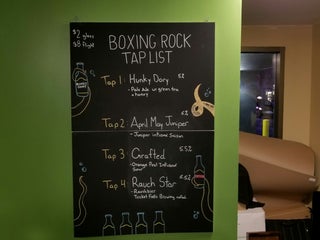 $2 glass
$8 flight
BOXING ROCK
TAP LIST
Tap 1: Hunky Dory 5.2
- Pale Ale w green tea
& honey
Tap 2: April May Juniper
- Juniper infused Saison
Tap 3: Crafted 5.2
- Orange Peel Infused
Sour
Tap 4: Rauch Star
- Rauchbier